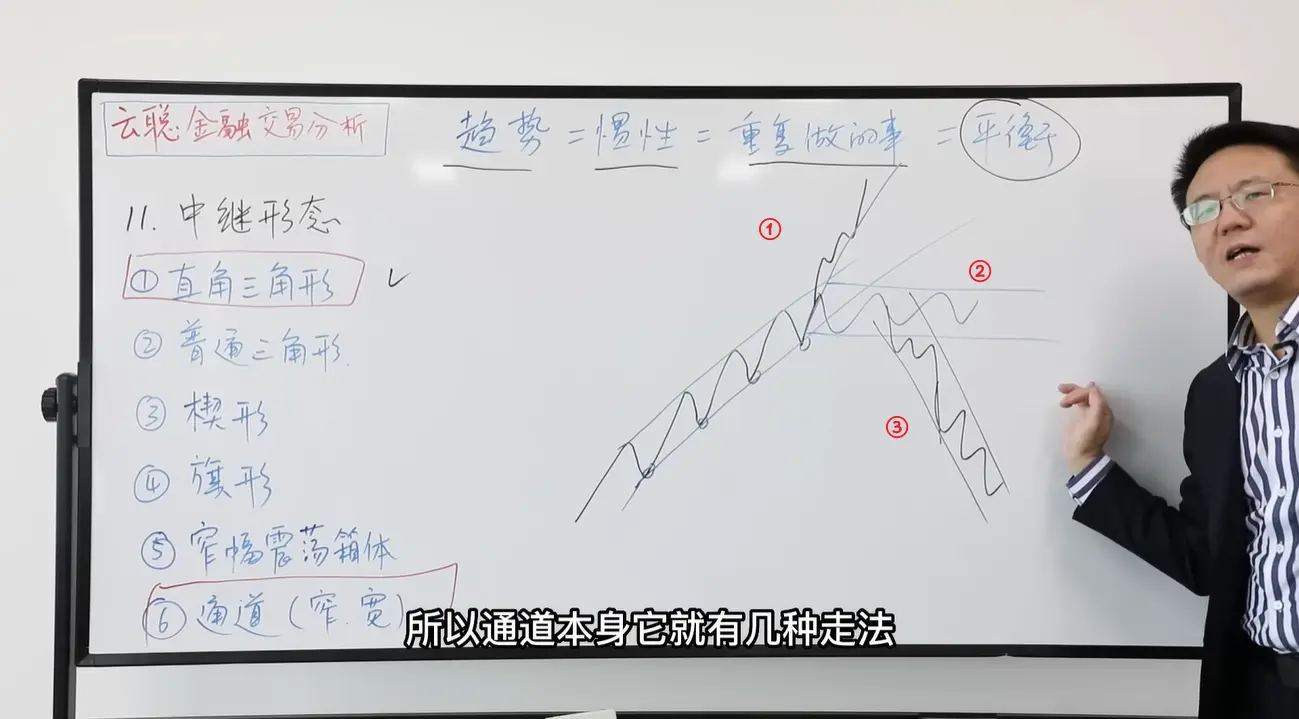 云聪金融交易分析
趋势 = 惯性 = 重复做的事 = 平衡
11. 中继形态
① 直角三角形 ✓
② 普通三角形
③ 楔形
④ 旗形
⑤ 窄幅震荡箱体
⑥ 通道（窄.宽）
①
②
③
所以通道本身它就有几种走法